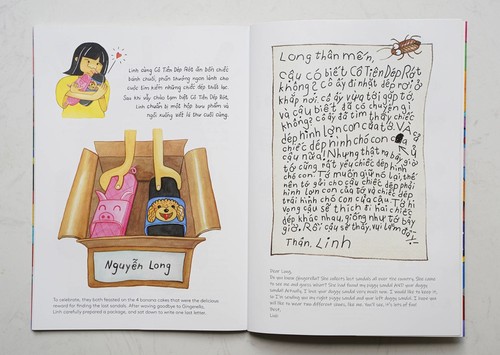 Linh cùng Cô Tiên Dép Rớt ăn bốn chiếc
bánh chuối, phần thưởng ngon lành cho
cuộc tìm kiếm những chiếc dép thất lạc.
Sau khi vẫy chào tạm biệt Cô Tiên Dép Rớt,
Linh chuẩn bị một hộp bưu phẩm và
ngồi xuống viết lá thư cuối cùng.
Nguyễn Long
To celebrate, they both feasted on the 4 banana cakes that were the delicious
reward for finding the lost sandals. After waving goodbye to Gingerella,
Linh carefully prepared a package, and sat down to write one last letter.
Long thân mến,
Cậu có biết Cô Tiên Dép Rớt
không? Cô ấy đi nhặt dép rơi ở
khắp nơi. Cô ấy vừa tới gặp tớ,
và cậu biết đã có chuyện gì
không? Cô ấy đã tìm thấy chiếc
dép hình lợn con của tớ. VÀ CẢ
chiếc dép hình chó con của
cậu nữa! Nhưng thật ra bây giờ
tớ cũng rất yêu chiếc dép hình
chó con. Tớ muốn giữ nó lại, thế
nên tớ gửi cho cậu chiếc dép phải
hình lợn con của tớ và chiếc dép
trái hình chó con của cậu. Tớ hi
vọng cậu sẽ thích đi hai chiếc
dép khác nhau, giống như tớ bây
giờ. Rồi cậu sẽ thấy, vui lắm đó!
Thân, Linh
Dear Long,
Do you know Gingerella? She collects lost sandals all over the country. She came
to see me and guess what? She had found my piggy sandal AND your doggy
sandal! Actually, I love your doggy sandal very much now. I would like to keep it,
so I'm sending you my right piggy sandal and your left doggy sandal. I hope you
will like to wear two different ones, like me. You'll see, it's lots of fun!
Best,
Linh